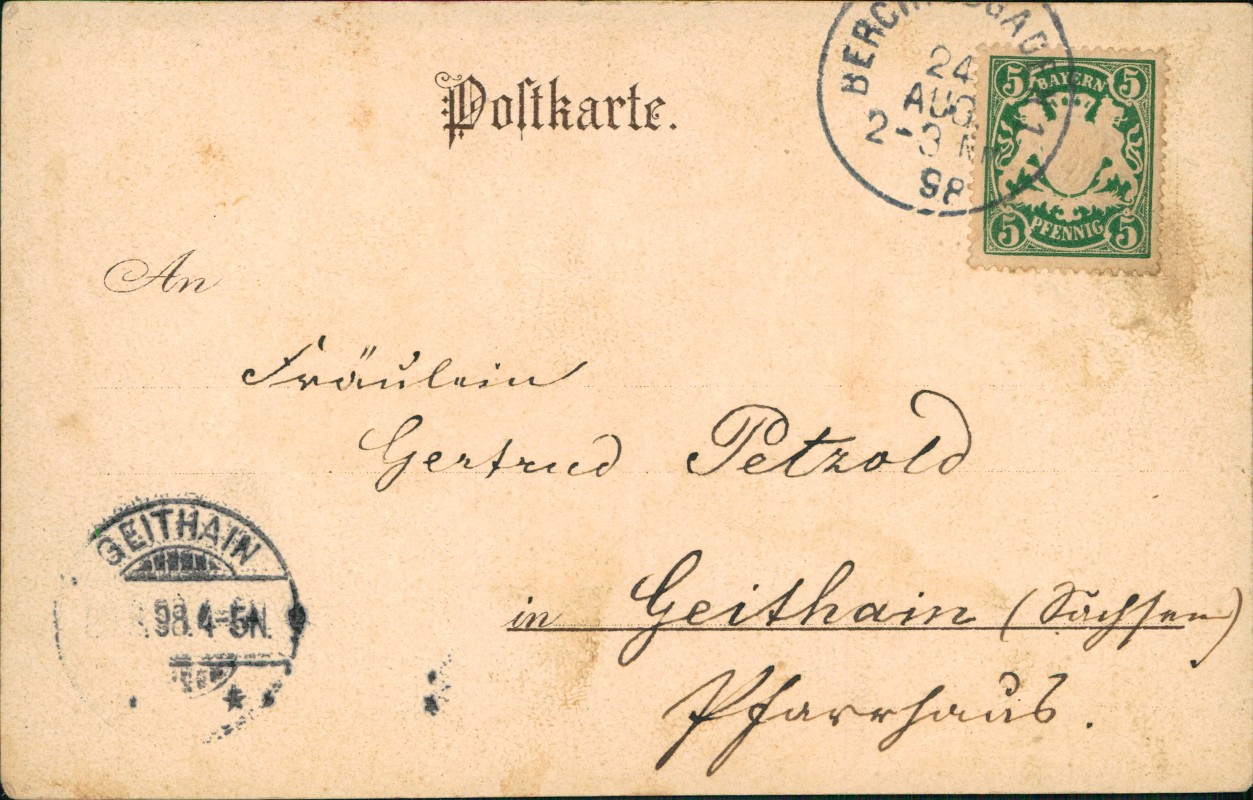 Postkarte.
24
AUG.
2-3 Nm
98
5 BAYERN 5
5 PFENNIG 5
An
Fräulein
Gertrud Petzold
GEITHAIN
98. 4-5N.
in Geithain (Sachsen)
Pfarrhaus.